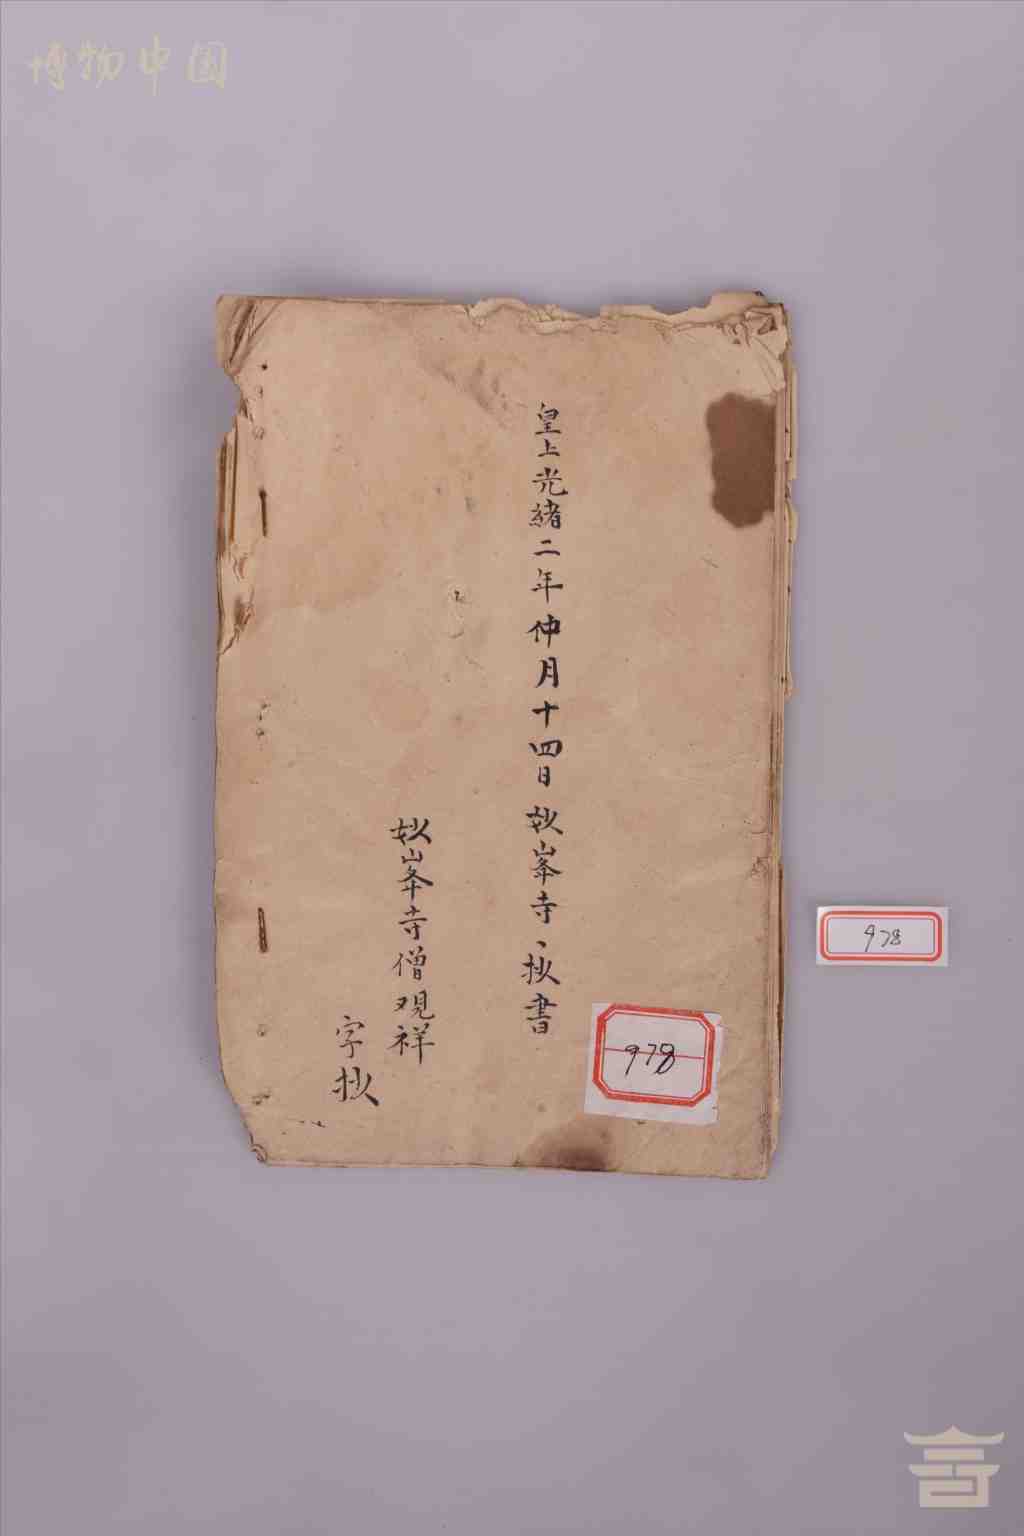 博物中国
皇上光緒二年仲月十四日妙峯寺、抄書
妙峯寺僧观祥
字抄
978
978